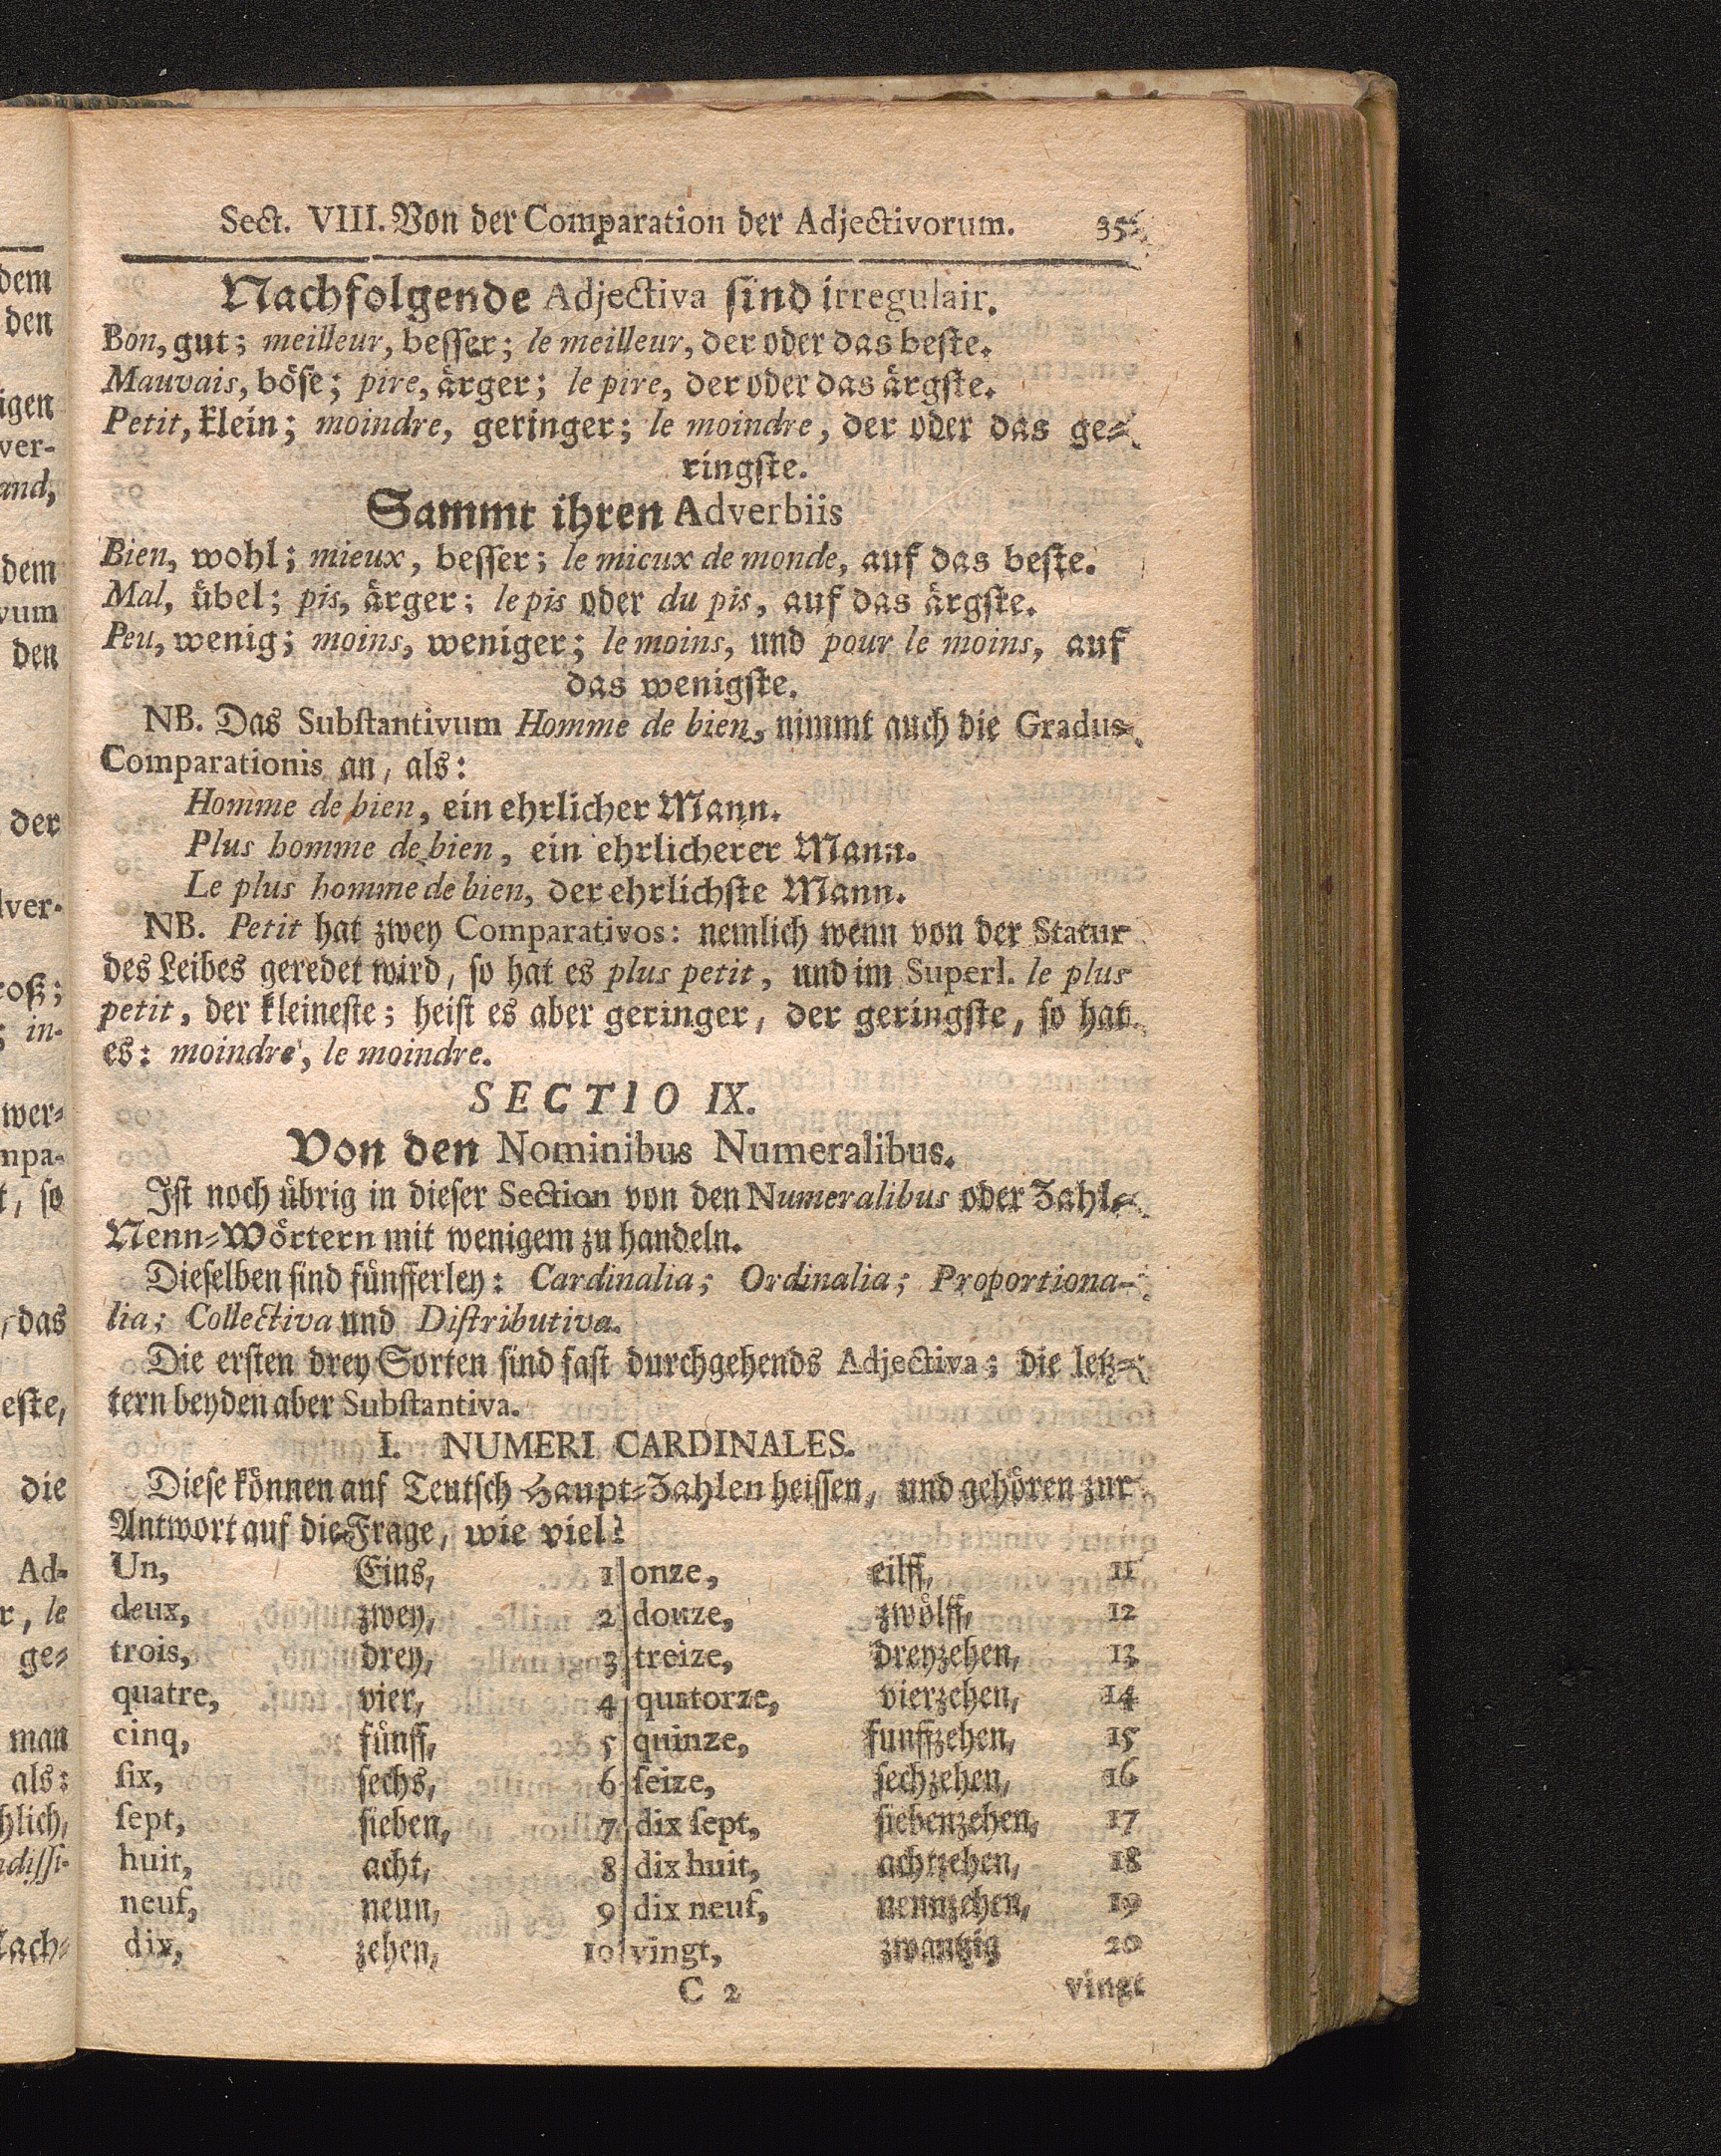 Sect. VIII. Von der Comparation der Adjectivorum. 35
Nachfolgende Adjectiva sind irregulair.
Bon, gut; meilleur, besser; le meilleur, der oder das beste.
Mauvais, böse; pire, ärger; le pire, der oder das ärgste.
Petit, klein; moindre, geringer; le moindre, der oder das ge-
ringste.
Sammt ihren Adverbiis
Bien, wohl; mieux, besser; le micux de monde, auf das beste.
Mal, übel; pis, ärger; le pis oder du pis, auf das ärgste.
Peu, wenig; moins, weniger; le moins, und pour le moins, auf
das wenigste.
NB. Das Substantivum Homme de bien, nimmt auch die Gradus
Comparationis an, als:
Homme de bien, ein ehrlicher Mann.
Plus homme de bien, ein ehrlicherer Mann.
Le plus homme de bien, der ehrlichste Mann.
NB. Petit hat zwey Comparativos: nemlich wenn von der Statur
des Leibes geredet wird, so hat es plus petit, und im Superl. le plus
petit, der kleineste; heist es aber geringer, der geringste, so hat
es: moindre, le moindre.
SECTIO IX.
Von den Nominibus Numeralibus.
Ist noch übrig in dieser Section von den Numeralibus oder Zahl-
Nenn-Wörtern mit wenigem zu handeln.
Dieselben sind fünfferley: Cardinalia; Ordinalia; Proportiona-
lia; Collectiva und Distributiva.
Die ersten drey Sorten sind fast durchgehends Adjectiva; die letz-
tern beyden aber Substantiva.
I. NUMERI CARDINALES.
Diese können auf Teutsch Haupt-Zahlen heissen, und gehören zur
Antwort auf die Frage, wie viel?
Un, Eins, 1 onze, eilff, 11
deux, zwey, 2 douze, zwölff, 12
trois, drey, 3 treize, dreyzehen, 13
quatre, vier, 4 quatorze, vierzehen, 14
cinq, fünff, 5 quinze, funffzehen, 15
six, sechs, 6 seize, sechzehen, 16
sept, sieben, 7 dix sept, siebenzehen, 17
huit, acht, 8 dix huit, achtzehen, 18
neuf, neun, 9 dix neuf, neunzehen, 19
dix, zehen, 10 vingt, zwantzig 20
C 2 vingt